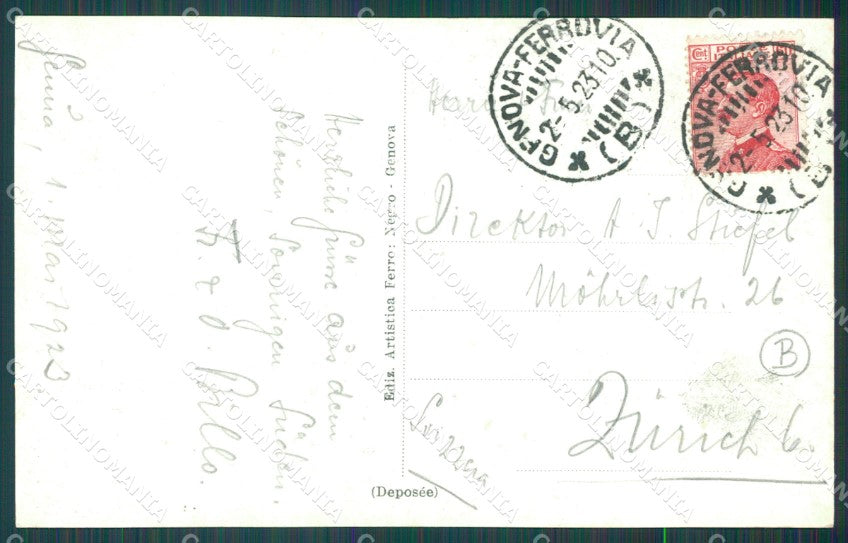 Genua, 1. Mai 1923
Herzliche Grüsse aus dem
schönen, sonnigen Süden.
F. & O.
Ediz. Artistica Ferro: Negro - Genova
(Deposée)
GENOVA-FERROVIA
2-5.23 10
(B)
GENOVA-FERROVIA
2-5.23 10
(B)
POSTE
Herrn
Direktor A. J. Stiefel
Möhrlistr. 26
Zürich 6.
Svizzera
B
CARTOLINOMANIA